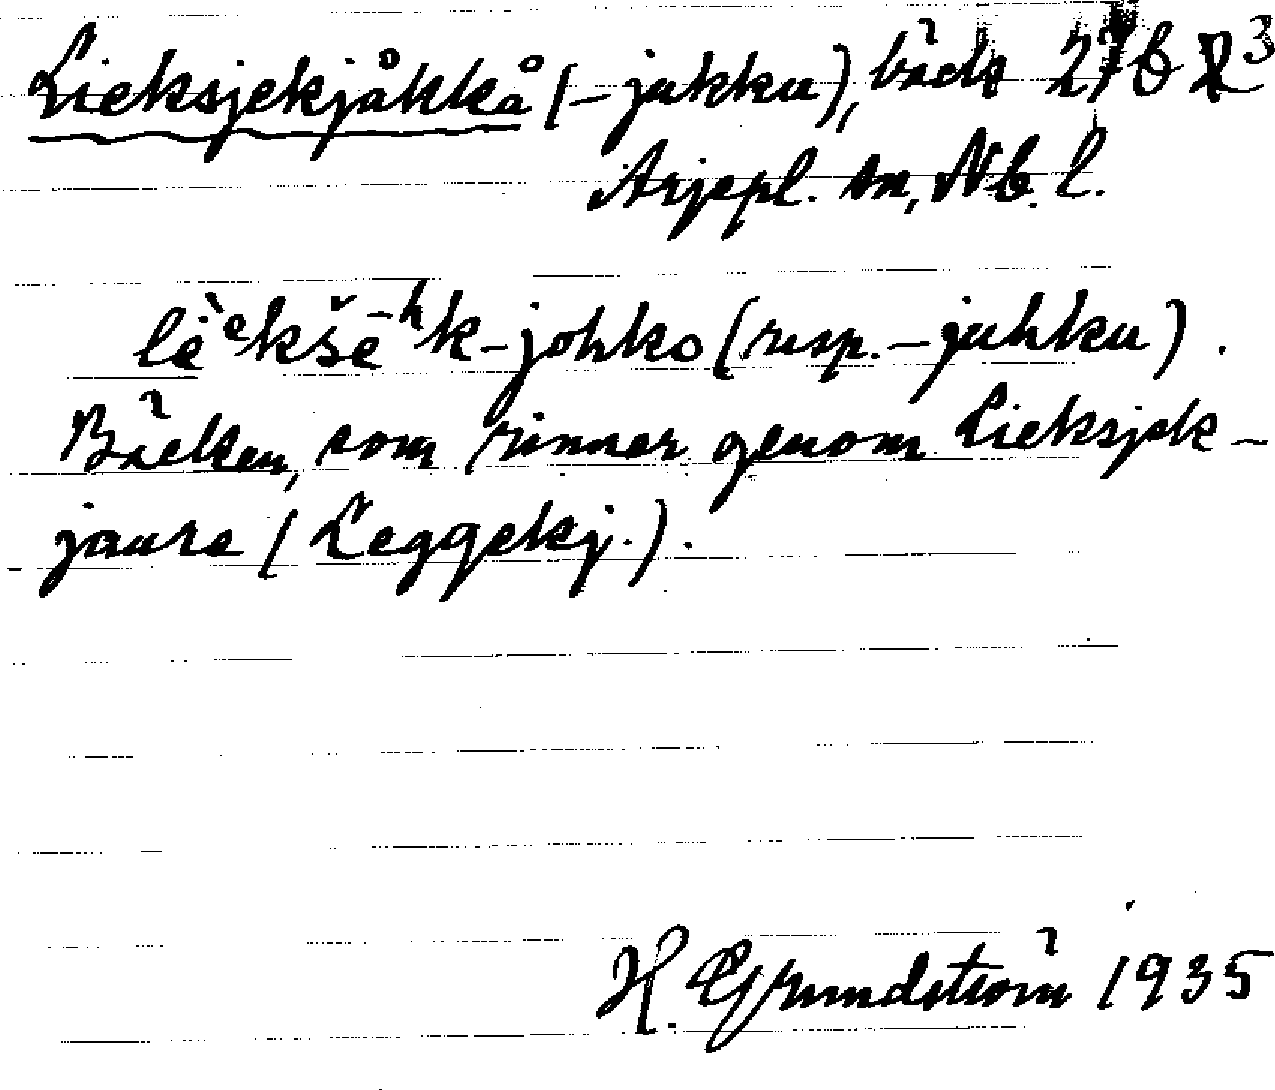 Lieksjekjåkkå (-jukku), bäck 27b
Arjepl. sn, Nb. l.
lè̀ᵉkšē̆ʰk-johko (resp. -juhku).
Bäcken, som rinner genom Lieksjek-
jaure (Leggekj.).
H. Grundström 1935